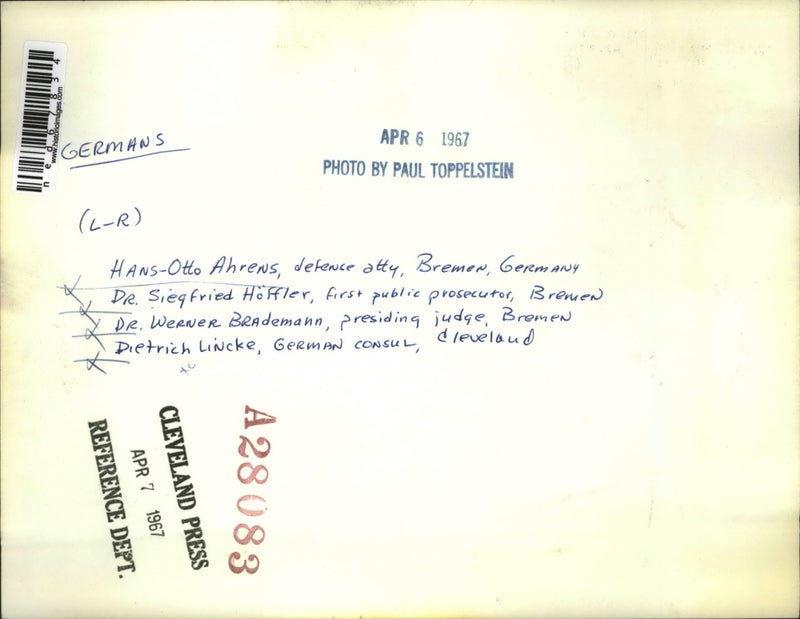 ned67834
www.historicimages.com
GERMANS
APR 6 1967
PHOTO BY PAUL TOPPELSTEIN
(L-R)
HANS-OTTO AHRENS, defence atty, Bremen, GERMANY
DR. Siegfried Höffler, first public prosecutor, Bremen
DR. WERNER BRADEMANN, presiding judge, Bremen
Dietrich LINCKE, GERMAN consul, Cleveland
CLEVELAND PRESS
APR 7 1967
REFERENCE DEPT.
A28083